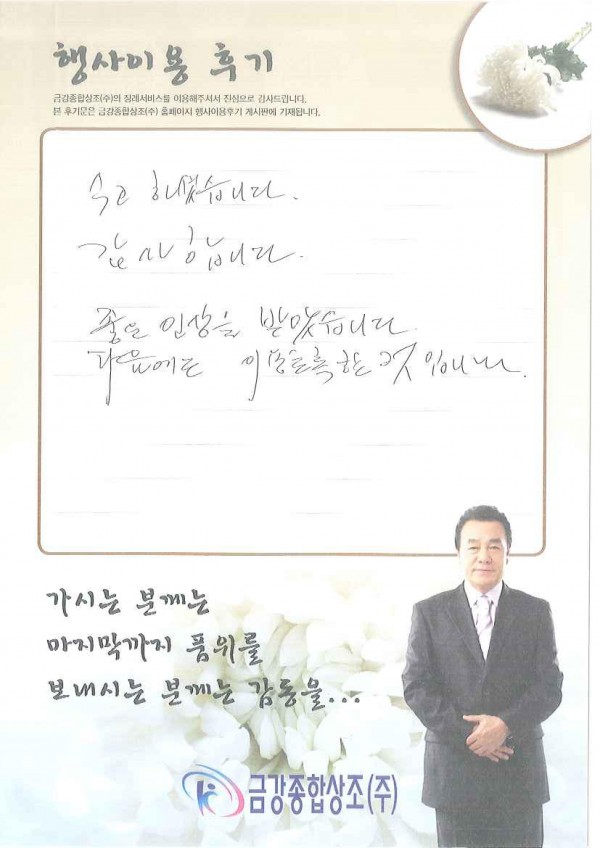 행사이용 후기
금강종합상조(주)의 장례서비스를 이용해주셔서 진심으로 감사드립니다.
본 후기문은 금강종합상조(주) 홈페이지 행사이용후기 게시판에 기재됩니다.
수고 하셨습니다.
감사합니다.
좋은 인상을 받았습니다.
다음에도 이용토록 할 것 입니다.
가시는 분께는
마지막까지 품위를
보내시는 분께는 감동을...
금강종합상조(주)